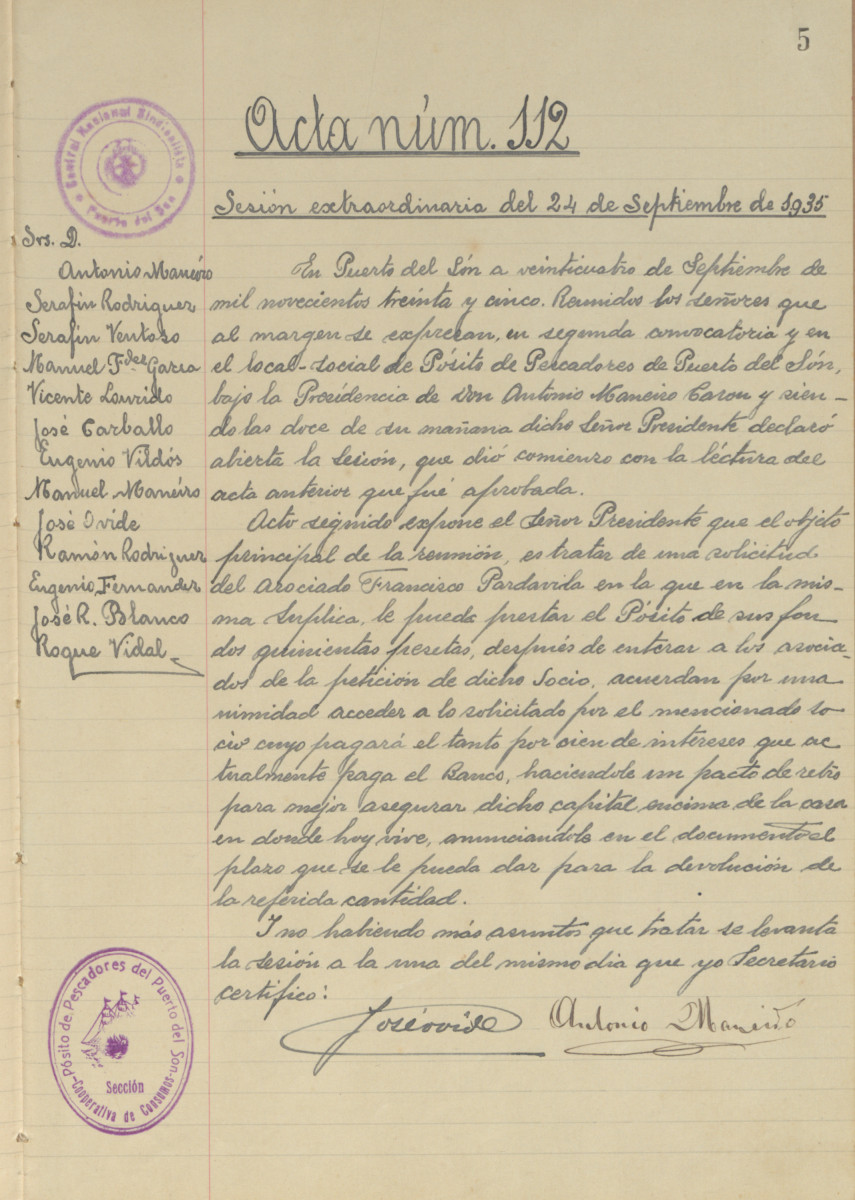 5
Acta núm. 112
Central Nacional Sindicalista
Puerto del Son
Sesión extraordinaria del 24 de Septiembre de 1935
Srs. D.
Antonio Maneiro
Serafin Rodriguez
Serafin Ventoso
Manuel Fdez Garcia
Vicente Lourido
José Carballo
Eugenio Vildós
Manuel Maneiro
José Ovide
Ramón Rodriguez
Eugenio Fernandez
José R. Blanco
Roque Vidal
En Puerto del Són a veinticuatro de Septiembre de
mil novecientos treinta y cinco. Reunidos los señores que
al margen se expresan, en segunda convocatoria y en
el local-social de Pósito de Pescadores de Puerto del Són,
bajo la Presidencia de Don Antonio Maneiro Carou y sien-
do las doce de su mañana dicho Señor Presidente declaró
abierta la Sesión, que dió comienzo con la léctura del
acta anterior que fué aprobada.
Acto seguido expone el Señor Presidente que el objeto
principal de la reunión, es tratar de una solicitud
del asociado Francisco Pardavila en la que en la mis-
ma suplica, le pueda prestar el Pósito de sus fon-
dos quinientas pesetas, después de enterar a los asocia-
dos de la petición de dicho Socio, acuerdan por una
nimidad acceder a lo solicitado por el mencionado so
cio cuyo pagará el tanto por cien de intereses que ac
tualmente paga el Banco, haciendole un pacto de retro
para mejor asegurar dicho capital encima de la casa
en donde hoy vive, anunciandole en el documento el
plazo que se le pueda dar para la devolución de
la referida cantidad.
I no habiendo más asuntos que tratar se levanta
la sesión a la una del mismo dia que yo Secretario
certifico:
José Ovide
Antonio Maneiro
Pósito de Pescadores del Puerto del Son
Sección
Cooperativa de Consumos